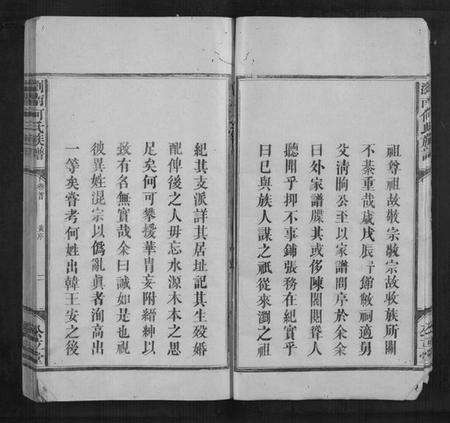 祖尊祖故敬宗敬宗故收族所關
不綦重哉歲戊辰予館敷祠適舅
父清昫公至以家譜問序於余余
曰外家譜牒其或侈陳閥閱聳人
聽聞乎抑不事鋪張務在紀實乎
曰已與族人謀之祇從來潤之祖
紀其支派詳其居址記其生歿婚
配俾後之人毋忘水源木本之思
足矣何可攀援華胄妄附縉紳以
致有名無實哉余曰誠如是也視
彼異姓混宗以僞亂眞者洵高出
一等矣嘗考何姓出韓王安之後
何氏族譜
卷首